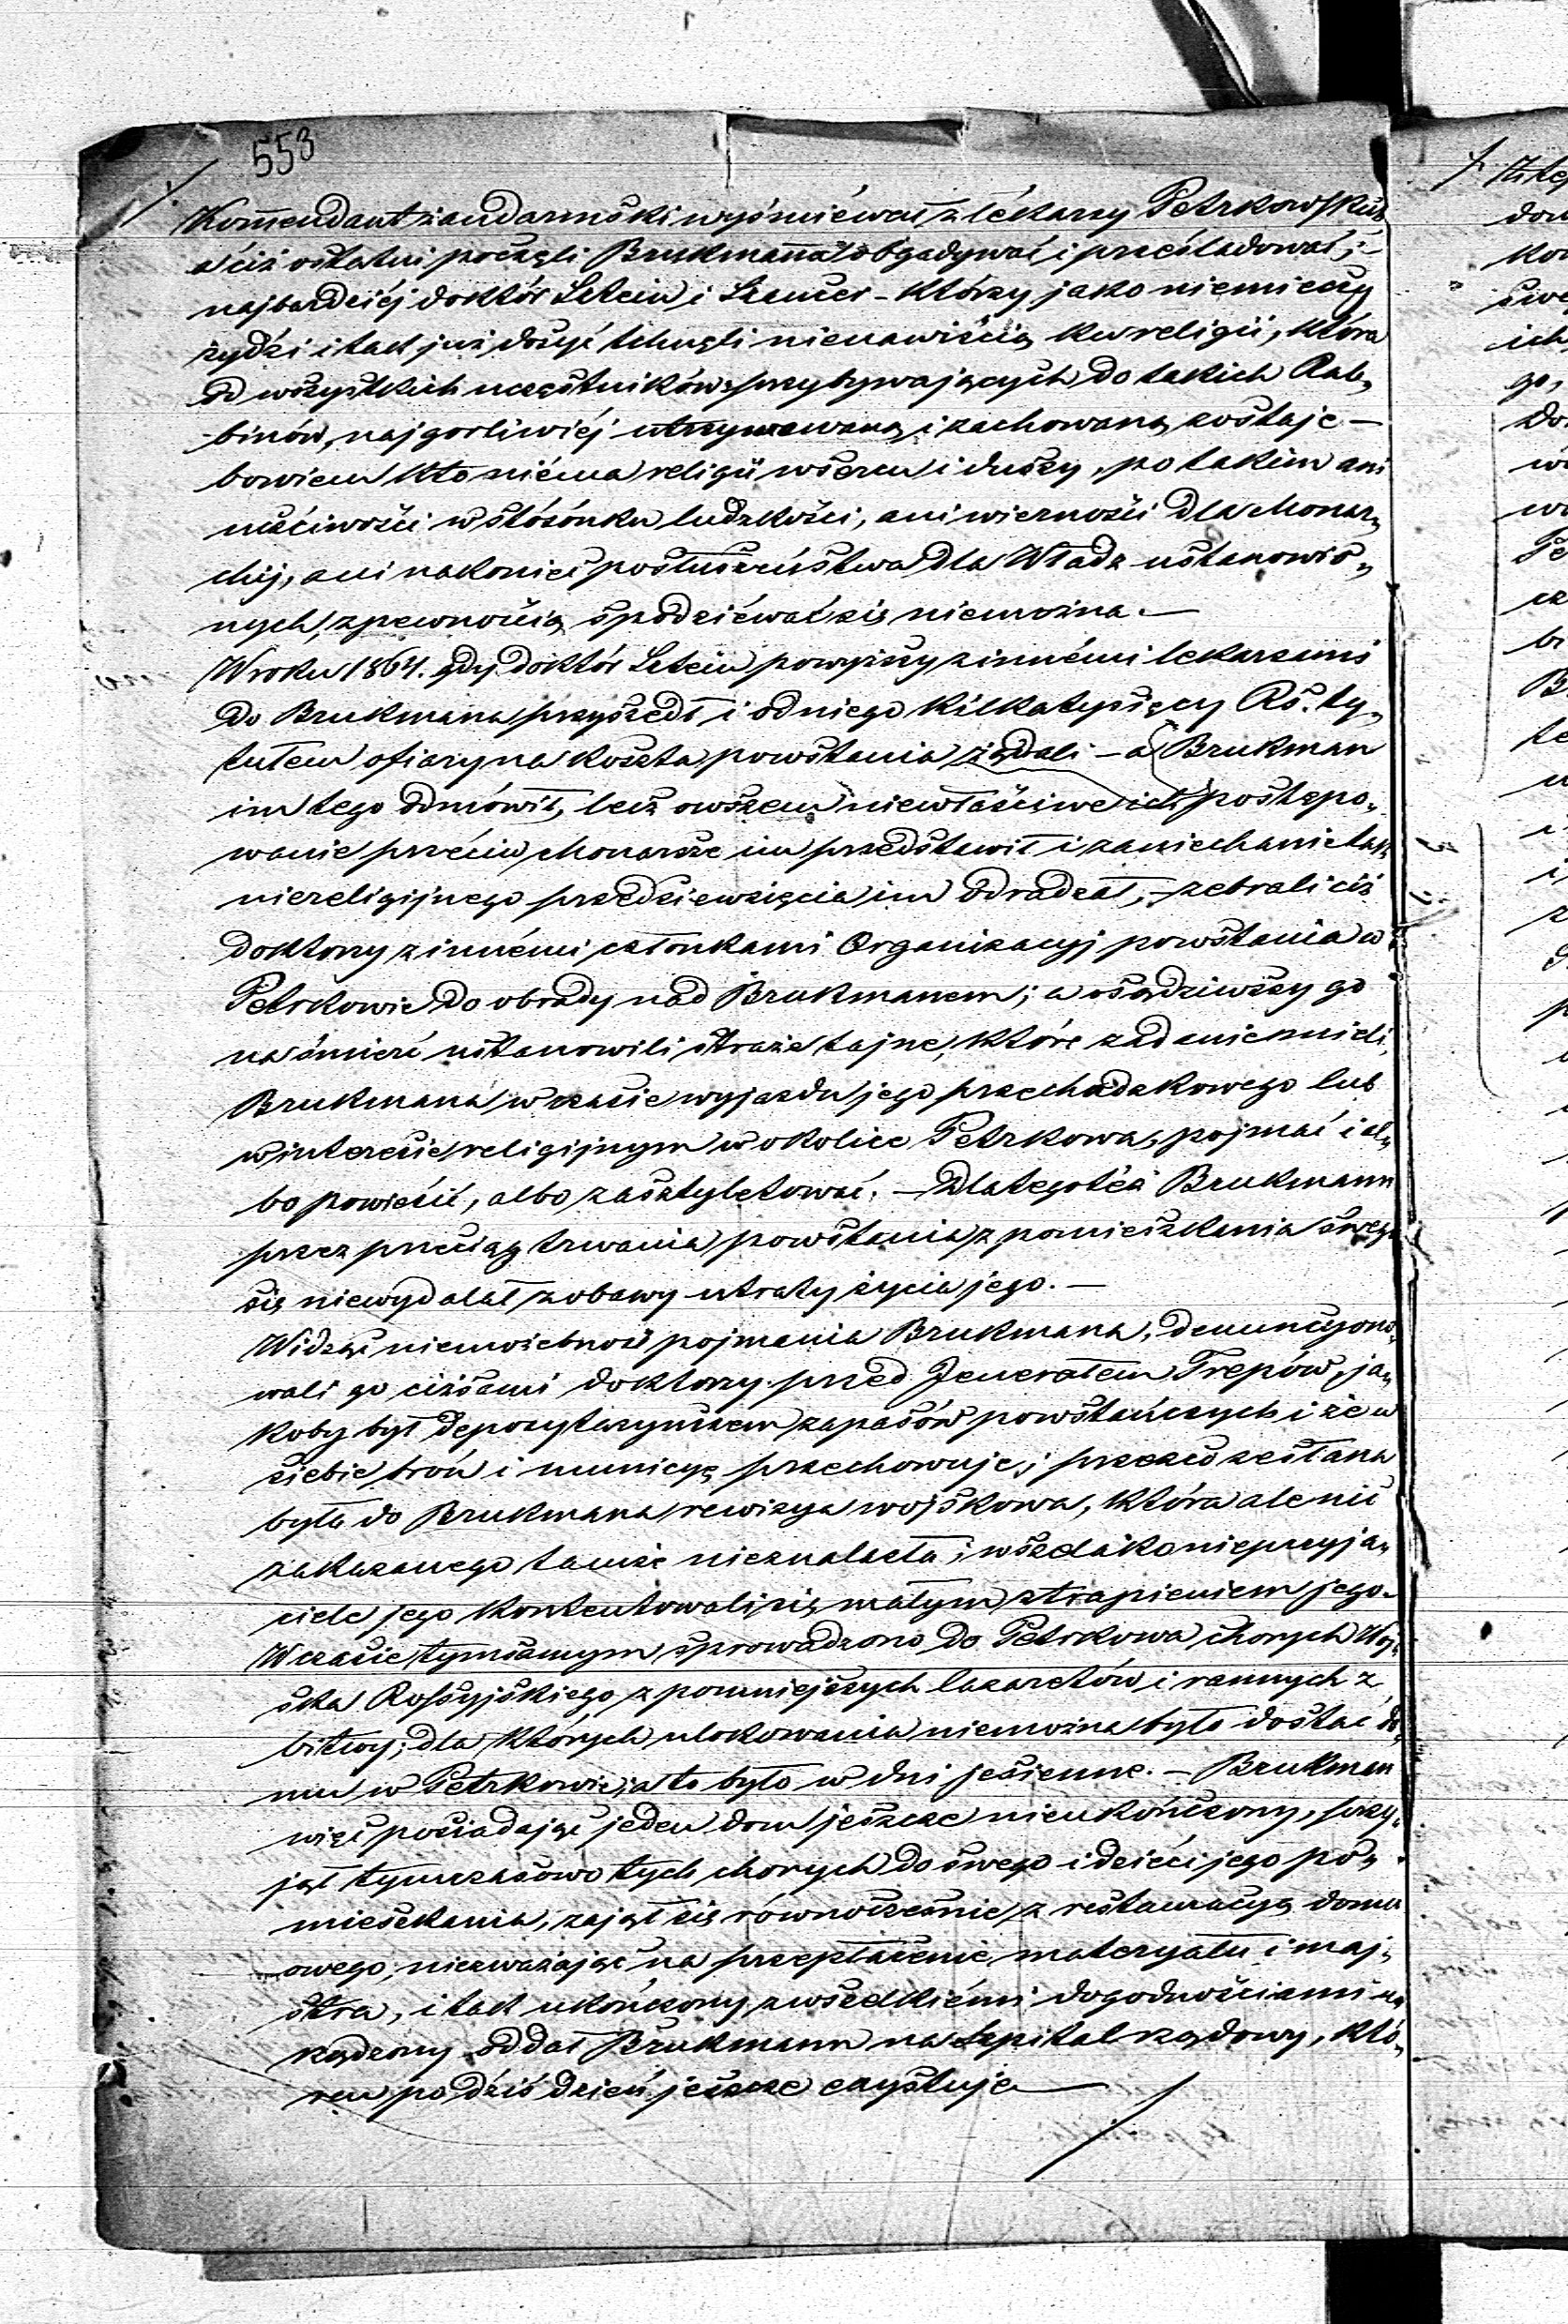 553
Kommendant żandarmski wyśmiéwał z lékarzy Petrkowskich
a ciż ostatni poczęli Brukmanna obgadywać i prześladować;
najbardziéj doktór Sztein i Szancer – którzy jako niemieccy
żydzi i tak już dosyć tchnęli nienawiścią ku religii, która
od wszystkich uczęstników przybywających do takich Rab„
binów, najgorliwiéj utrzymawaną i zachowaną zostaje –
bowiem kto niéma religii w sercu i duszy, po takim ani
uczciwości w stósónku ludzkości, ani wierności dla Monar„
chij, ani nakoniec posłuszeństwa dla Władz ustanowio„
nych, z pewnością spodziéwać się niemożna. —
W roku 1864. gdy doktór Sztein powyższy z innémi lekarzami
do Brukmana przyszedł i od niego kilka tysięcy Rs. ty„
tułem ofiary na koszta powstania żądali – a Brukman
im tego odmówił, lecz owszem niewłaściwe ich postępo„
wanie przeciw Monarsze im przedstawił i zaniechanie tak
niereligijnego przedsiewzięcia im odradzał, – zebrali ciż
doktorzy z innémi członkami Organizacyj powstania w
Petrkowie do obrady nad Brukmanem; a osądziwszy go
na śmierć ustanowili straże tajne, które zadanie mieli
Brukmana w czasie wyjazdu jego przechadzkowego lub
w interesie religijnym w okolice Petrkowa, pojmać i al„
bo powiésić, albo zasztyletować. – Dlategoteż Brukmann
przez przeciąg trwania powstania z pomieszkania swego
się niewydalał z obawy utraty życia jego. —
Widząc niemożebność pojmania Brukmana, denuncyono„
wali go ciżsami doktorzy przed Jenerałem Trepów, ja„
koby był depozytaryuszem zapasów powstańczych i że u
siebie broń i municyę przechowuje; przezco zesłana
była do Brukmana rewizya wojskowa, która ale nic
zakazanego tamże nieznalazła; wszelako nieprzyja„
ciele jego kontentowali się małym strapieniem jego.
W czasie tymsamym sprowadzono do Petrkowa chorych Woj„
ska Rossyjskiego, z pomniejszych lazaretów i rannych z
bitwy; dla których ulokowania niemożna było dostać do„
mu w Petrkowie; a to było w dni jesienne. – Brukman
więc posiadając jeden dom jeszcze nieukończony, przy„
jął tymczasowo tych chorych do swego i dzieci jego po„
mieszkania, zajął się równocześnie z restauracyą domu
owego, niezważając na przepłacenie materyału i maj„
stra, i tak ukończony z wszelkiémi dogodnościami u„
rządzony oddał Brukmann na Szpital rządowy, któ„
ren po dziś dzień jeszcze exystuje —